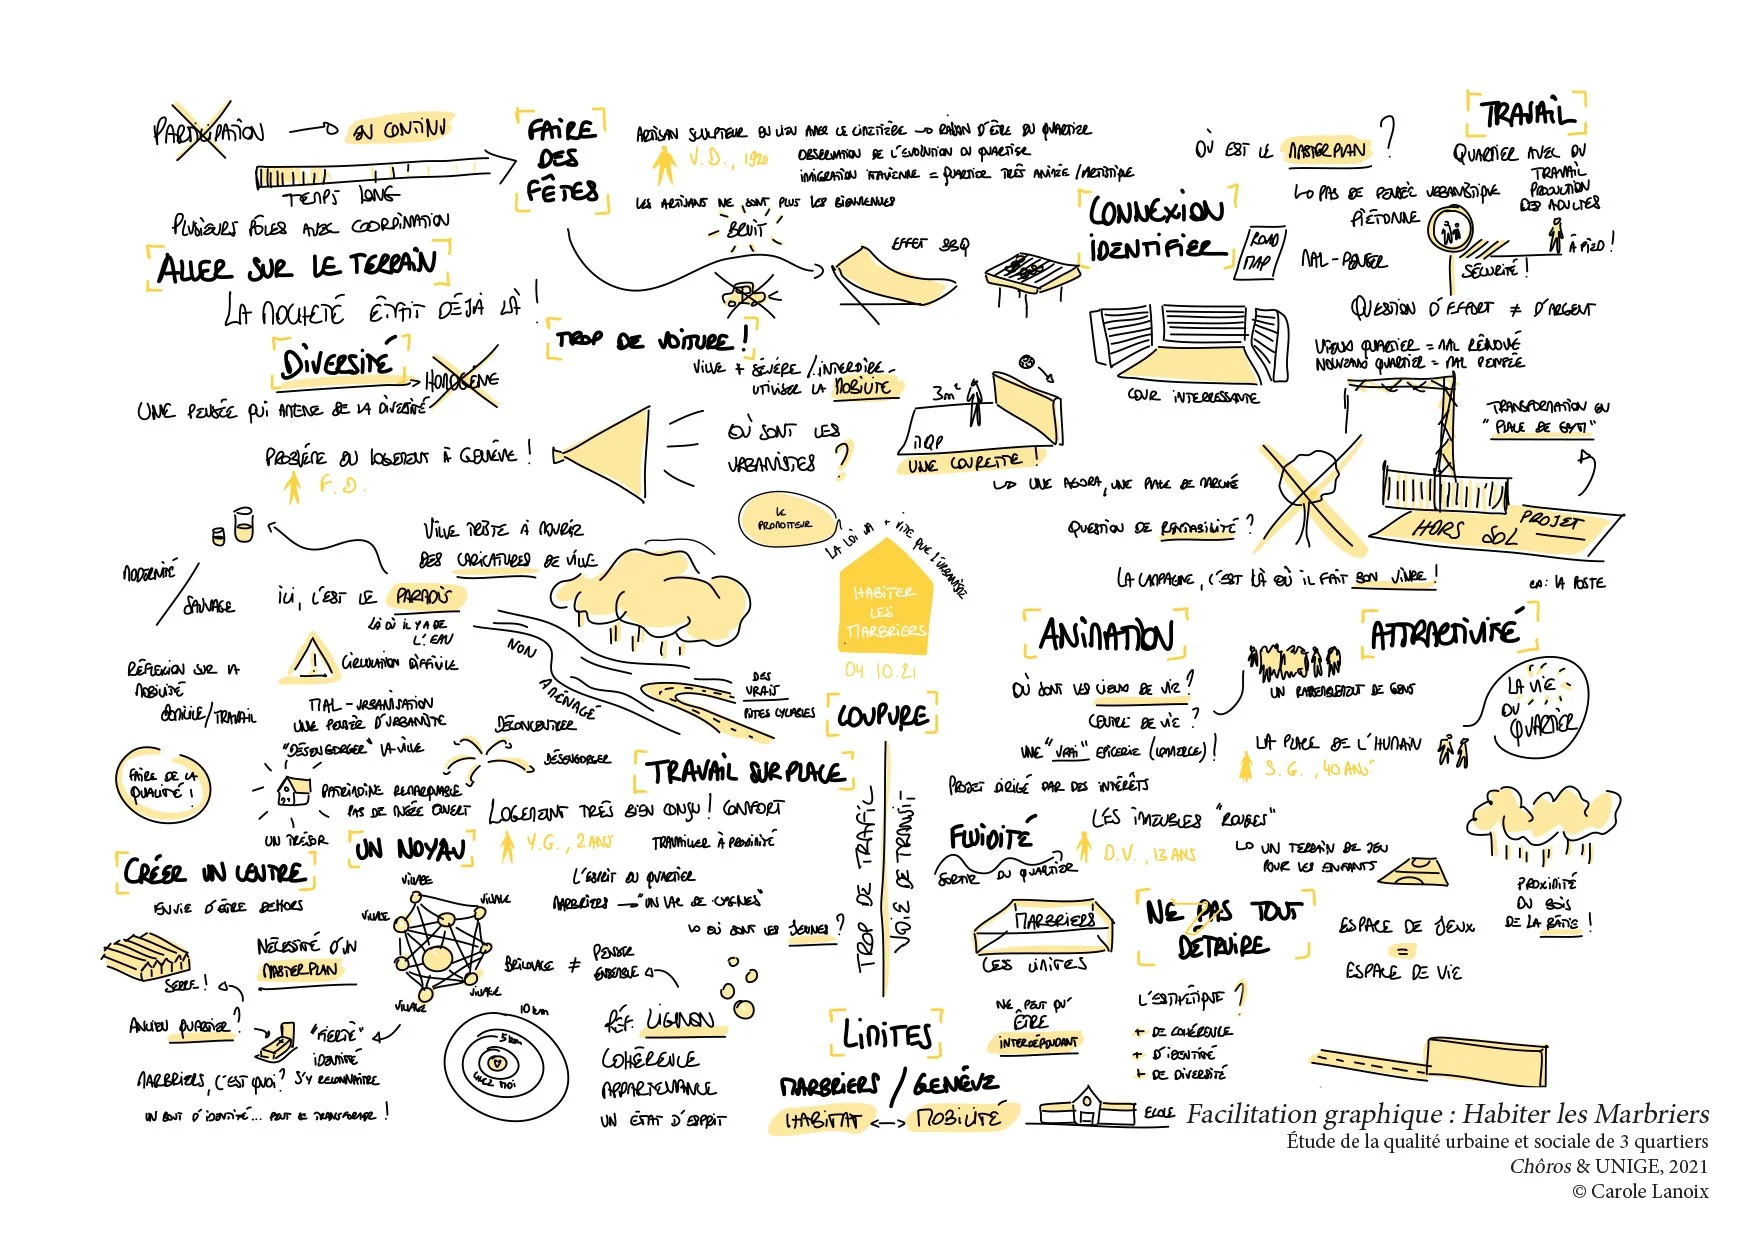 PARTICIPATION → EN CONTINU
TEMPS LONG
PLUSIEURS PÔLES AVEC COORDINATION
ALLER SUR LE TERRAIN
LA MOCHETÉ ÉTAIT DÉJÀ LÀ !
DIVERSITÉ
HOMOGÈNE
UNE PENSÉE QUI AMÈNE DE LA DIVERSITÉ
PROBLÈME DU LOGEMENT À GENÈVE !
F. D.
FAIRE
DES
FÊTES
ARTISAN SCULPTEUR EN LIEN AVEC LE CIMETIÈRE → RAISON D'ÊTRE DU QUARTIER
V. D., 1920
OBSERVATION DE L'ÉVOLUTION DU QUARTIER
IMMIGRATION ITALIENNE = QUARTIER TRÈS ANIMÉE / ARTISTIQUE
LES ARTISANS NE SONT PLUS LES BIENVENUES
BRUIT
EFFET BBQ
TROP DE VOITURE !
VILLE + SÉVÈRE / INTERDIRE
UTILISER LA MOBILITÉ
OÙ SONT LES
URBANISTES ?
3m²
MQP
UNE COURETTE !
↳ UNE AGORA, UNE PLACE DE MARCHÉ
CONNEXION
IDENTIFIER
ROAD
MAP
COUR INTERESSANTE
OÙ EST LE MASTERPLAN ?
↳ PAS DE PENSÉE URBANISTIQUE
PIÉTONNE
MAL-PENSER
TRAVAIL
QUARTIER AVEC DU
TRAVAIL
PRODUCTION
DES ADULTES
À PIED !
SÉCURITÉ !
QUESTION D'EFFORT ≠ D'ARGENT
VIEUX QUARTIER = MAL RÉNOVÉ
NOUVEAU QUARTIER = MAL PENSÉE
TRANSFORMATION EN
"PLACE DE GYM"
QUESTION DE RENTABILITÉ ?
HORS SOL PROJET
LA CAMPAGNE, C'EST LÀ OÙ IL FAIT BON VIVRE !
EX : LA POSTE
MODERNITÉ
/ SAUVAGE
VILLE TRISTE À MOURIR
DES CARICATURES DE VILLE
ICI, C'EST LE PARADIS
LÀ OÙ IL Y A DE
L'EAU
CIRCULATION DIFFICILE
NON AMÉNAGÉ
DES
VRAIS
PISTES CYCLABLES
LE
PROMOTEUR
LA LOI VA + VITE QUE L'URBANISME
HABITER
LES
MARBRIERS
04.10.21
RÉFLEXION SUR LA
MOBILITÉ
DOMICILE / TRAVAIL
MAL-URBANISATION
UNE PENSÉE D'URBANISTE
"DÉSENGORGER" LA VILLE
DÉCONCENTRER
DÉSENGORGER
FAIRE DE LA
QUALITÉ !
PATRIMOINE REMARQUABLE
PAS DE MUSÉE OUVERT
UN TRÉSOR
TRAVAIL SUR PLACE
LOGEMENT TRÈS BIEN CONÇU ! CONFORT
Y.G., 2 ANS
TRAVAILLER À PROXIMITÉ
L'ESPRIT DU QUARTIER
MARBRIERS → "UN LAC DE CYGNES"
↳ OÙ SONT LES JEUNES ?
COUPURE
TROP DE TRAFIC
VOIE DE TRANSIT
CRÉER UN CENTRE
ENVIE D'ÊTRE DEHORS
SERRE !
NÉCESSITÉ D'UN
MASTERPLAN
UN NOYAU
VILLAGE
VILLAGE
VILLAGE
VILLAGE
VILLAGE
BRICOLAGE ≠ PENSER
ENSEMBLE
ANCIEN QUARTIER ?
"FIERTÉ"
IDENTITÉ
S'Y RECONNAÎTRE
MARBRIERS, C'EST QUOI ?
UN BOUT D'IDENTITÉ... PEUT SE TRANSFORMER !
10 km
5 km
CHEZ MOI
RÉF. LIGNON
COHÉRENCE
APPARTENANCE
UN ÉTAT D'ESPRIT
LIMITES
MARBRIERS / GENÈVE
HABITAT ↔ MOBILITÉ
ECOLE
ANIMATION
OÙ SONT LES LIEUX DE VIE ?
CENTRE DE VIE ?
UNE "VRAI" EPICERIE (COMMERCE) !
PROJET DIRIGÉ PAR DES INTÉRÊTS
ATTRACTIVITÉ
UN RASSEMBLEMENT DE GENS
LA PLACE DE L'HUMAIN
S. G., 40 ANS
LA VIE
DU
QUARTIER
FLUIDITÉ
SORTIR DU QUARTIER
LES IMMEUBLES "ROUGES"
D.V., 13 ANS
↳ UN TERRAIN DE JEU
POUR LES ENFANTS
MARBRIERS
LES LIMITES
NE PEUT QU'
ÊTRE
INTERDÉPENDANT
NE PAS TOUT
DÉTRUIRE
L'ESTHÉTIQUE ?
+ DE COHÉRENCE
+ D'IDENTITÉ
+ DE DIVERSITÉ
ESPACE DE JEUX
=
ESPACE DE VIE
PROXIMITÉ
DU BOIS
DE LA BÂTIE !
Facilitation graphique : Habiter les Marbriers
Étude de la qualité urbaine et sociale de 3 quartiers
Chôros & UNIGE, 2021
© Carole Lanoix